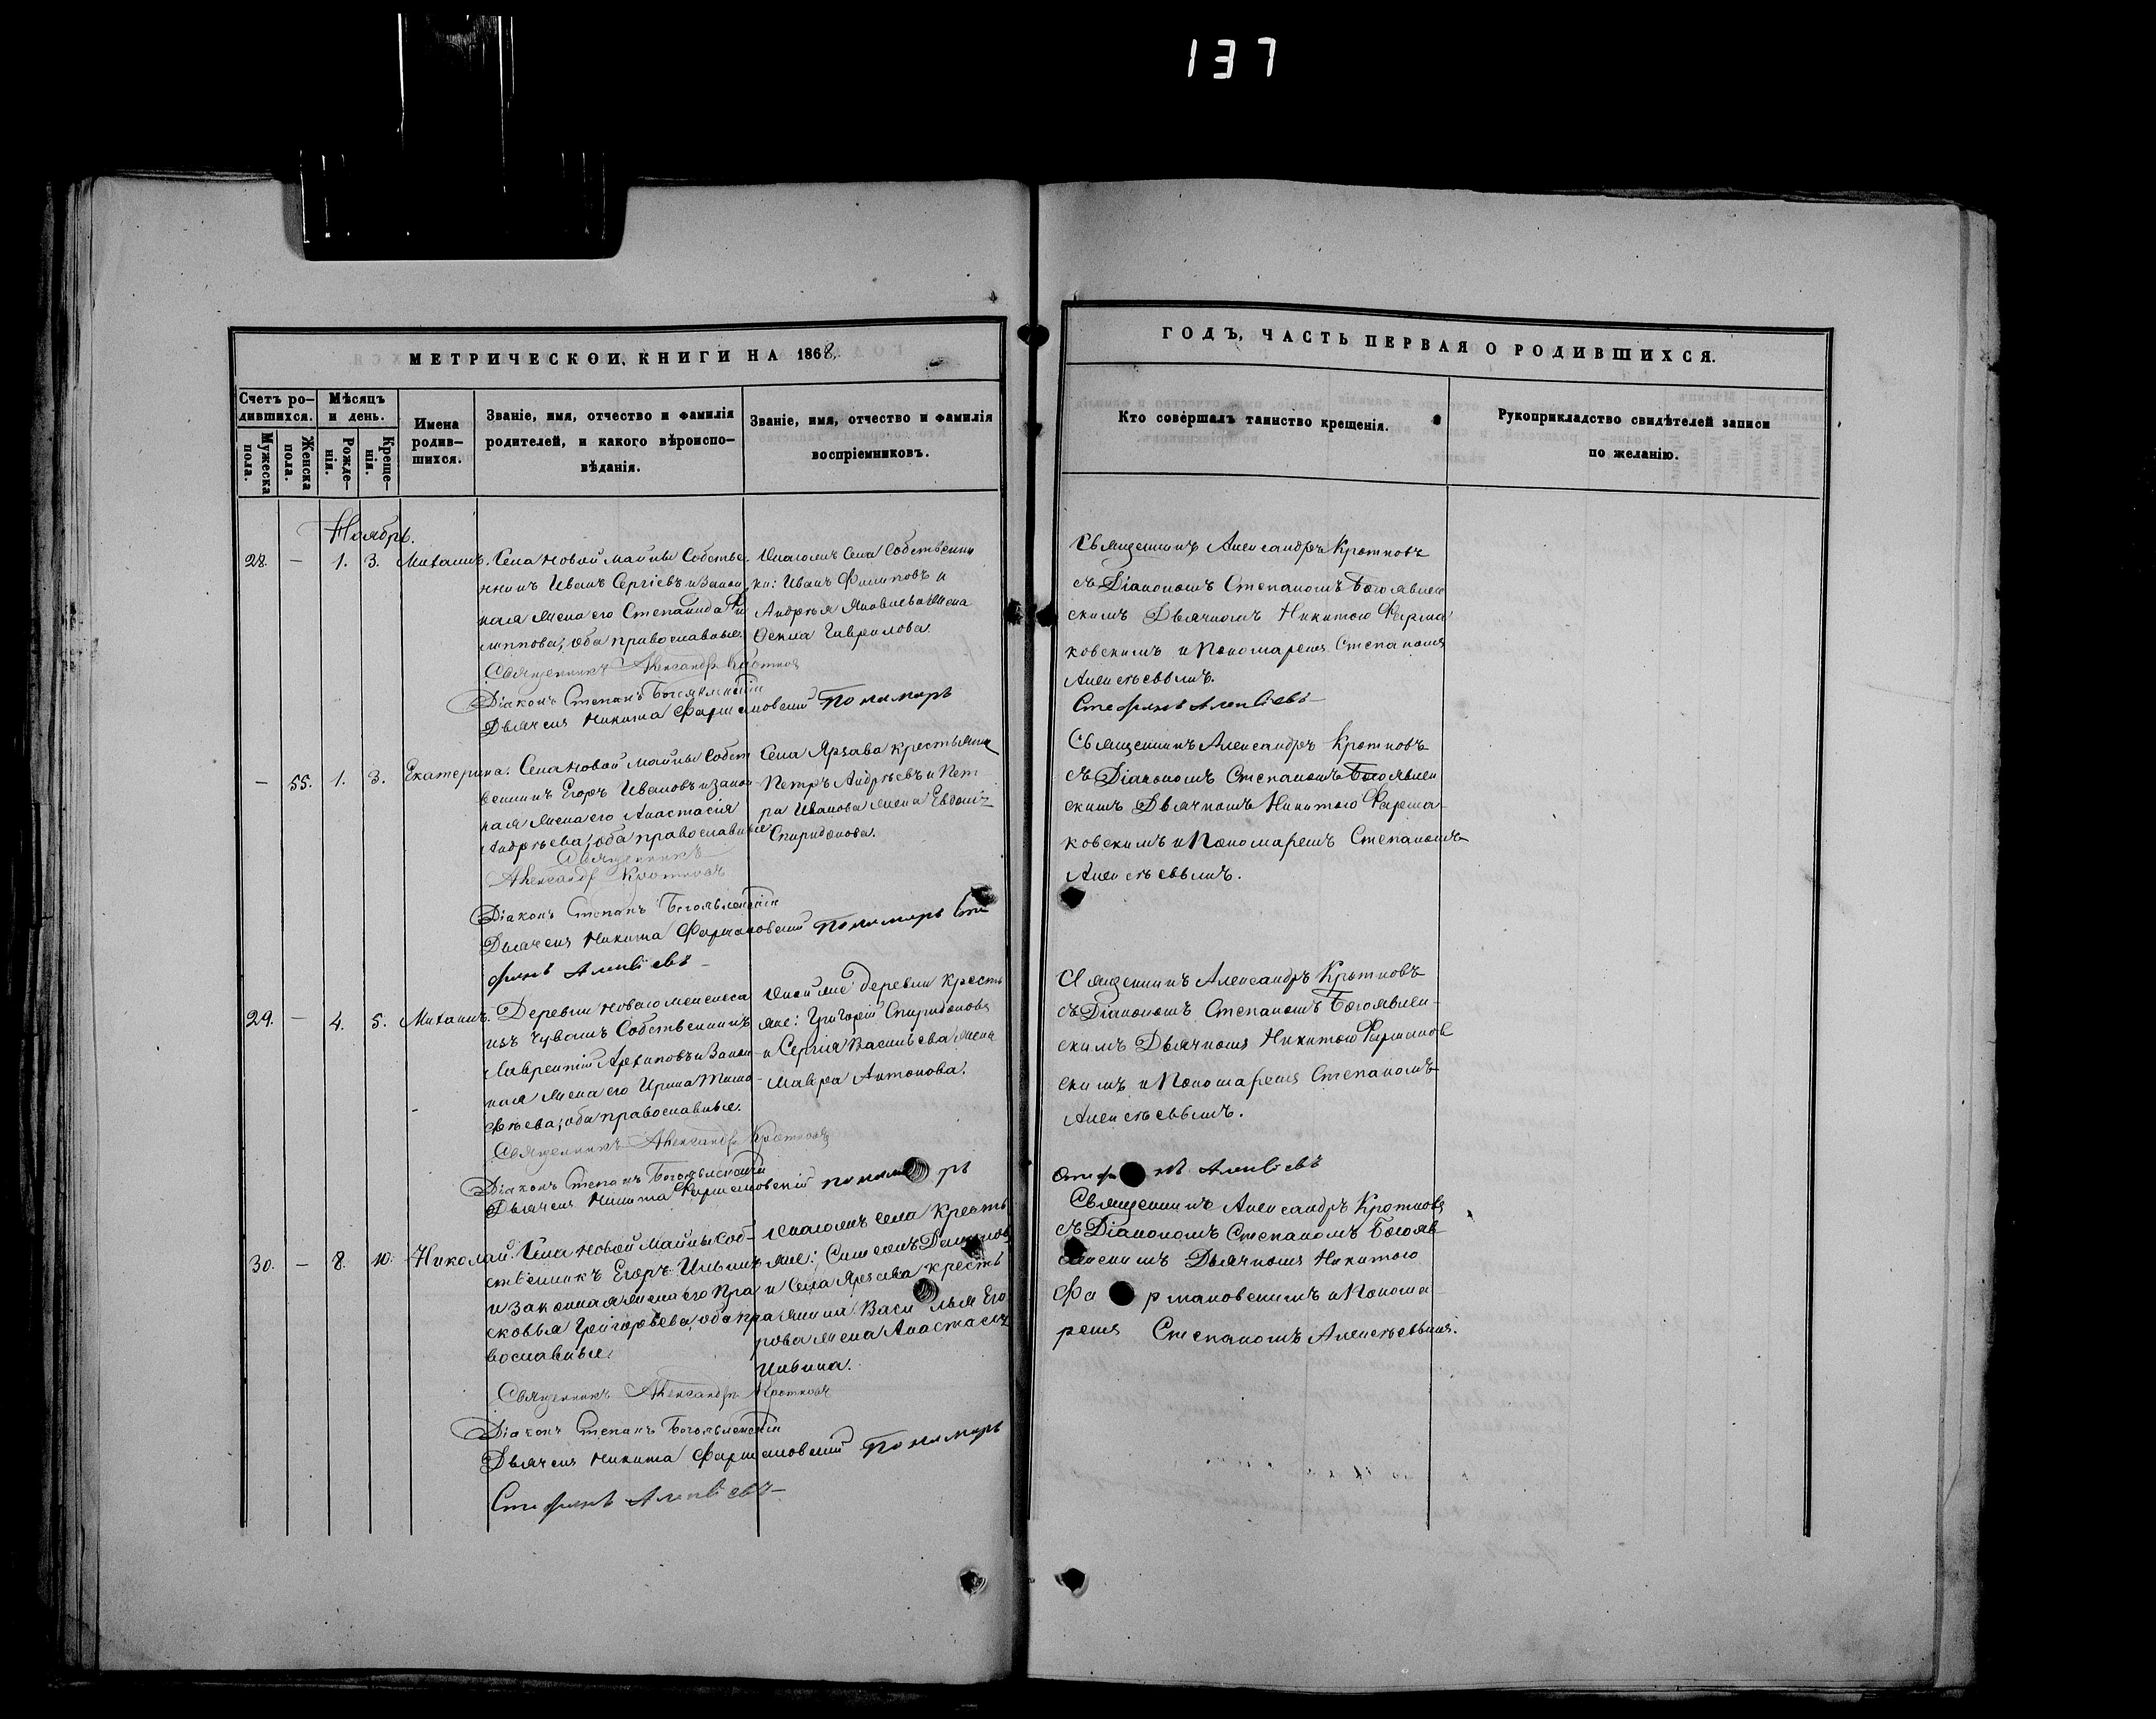 137
МЕТРИЧЕСКОЙ КНИГИ НА 1868
Счетъ ро-
дившихся.
Мужеска
пола.
Женска
пола.
Мѣсяцъ
и день.
Рожде-
нія.
Креще-
нія.
Имена
родив-
шихся.
Званіе, имя, отчество и фамилія
родителей, и какого вѣроиспо-
вѣданія.
Званіе, имя, отчество и фамилія
воспріемниковъ.
Ноябрь.
28. — 1. 3. Михаилъ.
Села Новой Майны Собстве-
нникъ Иванъ Сергіевъ и закон
ная жена его Степанида Фи
липпова, оба православные.
Священникъ Александръ Кротковъ
Діаконъ Степанъ Богоявленскій
Дьячекъ Никита Фармаковскій Пономарь
тогожъ Села Собственни
ки: Иванъ Филиповъ и
Андрея Яковлева жена
Гаврилова.
— 55. 1. 3. Екатерина.
Села Новой Майны Собст
венникъ Егоръ Ивановъ и закон
ная жена его Анастасія
Андреева, оба православные
Священникъ
Александръ Кротковъ
Діаконъ Степанъ Богоявленскій
Дьячекъ Никита Фармаковскій Пономарь Сте
фанъ Алексіевъ
Села крестьяни
Петръ Андреевъ и Пет
ра Иванова жена
Спиридонова.
29. — 4. 5. Михаилъ.
Деревни Новаго
изъ Чувашъ Собственникъ
Лаврентій Архиповъ и закон
ная жена его Ирина Тимо
фѣева, оба православные.
Священникъ Александръ Кротковъ
Діаконъ Степанъ Богоявленскій
Дьячекъ Никита Фармаковскій пономарь
деревни кресть
яне: Григорій Спиридоновъ
и Сергія Васильева жена
Мавра Антонова.
30. — 8. 10. Николай.
Села Новой Майны Соб-
ственникъ Егоръ Ильинъ
и законная жена его Пра
сковья Григорьева, оба пра
вославные.
Священникъ Александръ Кротковъ
Діаконъ Степанъ Богоявленскій
Дьячекъ Никита Фармаковскій Пономарь
Стефанъ Алексіевъ
тогожъ села кресть
яне:
и Села кресть
янина Василья Его
рова жена Анастасія
Ильина.
ГОДЪ, ЧАСТЬ ПЕРВАЯ О РОДИВШИХСЯ.
Кто совершалъ таинство крещенія.
Рукоприкладство свидѣтелей записи
по желанію.
Священникъ Александръ Кротковъ
съ Діакономъ Степаномъ Богоявлен
скимъ Дьячкомъ Никитою Фарма
ковскимъ и Пономаремъ Степаномъ
Алексѣевымъ.
Стефанъ Алексіевъ
Священникъ Александръ Кротковъ
съ Діакономъ Степаномъ Богоявлен
скимъ Дьячкомъ Никитою Фарма-
ковскимъ и Пономаремъ Степаномъ
Алексѣевымъ.
Священникъ Александръ Кротковъ
съ Діакономъ Степаномъ Богоявлен-
скимъ Дьячкомъ Никитою Фармаков
скимъ и Пономаремъ Степаномъ
Алексѣевымъ.
Стефанъ Алексіевъ
Священникъ Александръ Кротковъ
съ Діакономъ Степаномъ Богояв-
ленскимъ Дьячкомъ Никитою
Фармаковскимъ и Понома-
ремъ Степаномъ Алексѣевымъ.